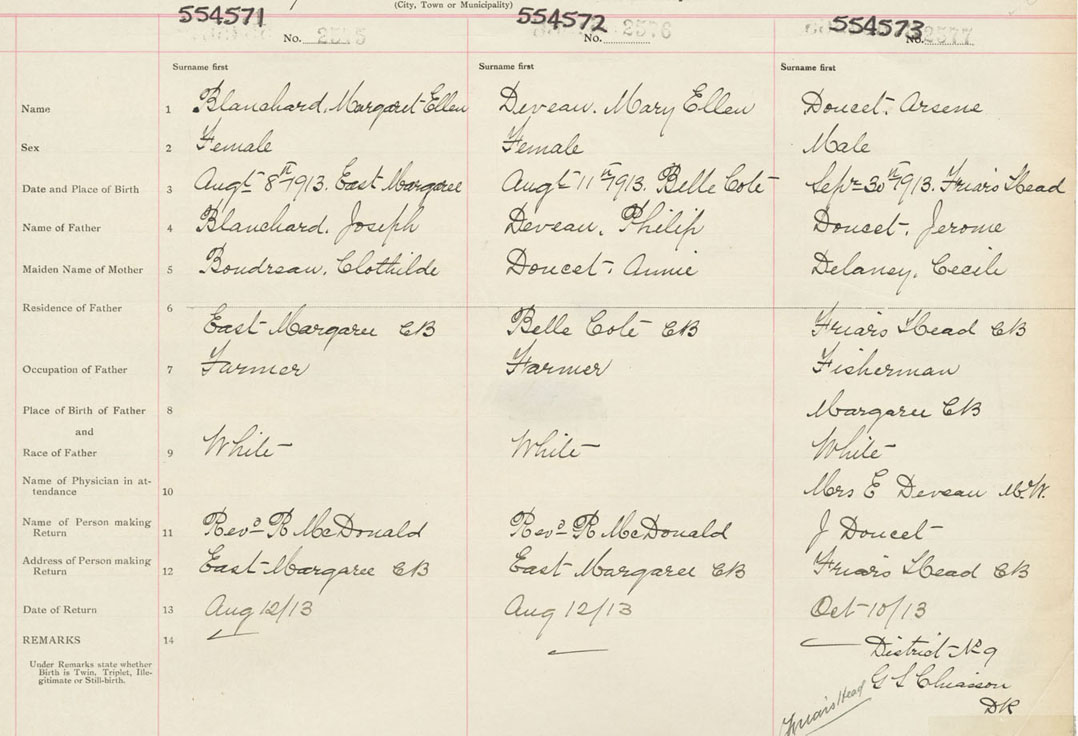 (City, Town or Municipality)
554571 554572 554573
No. 2575 No. 2576 No. 2577
Surname first Surname first Surname first
Name 1 Blanchard, Margaret Ellen Deveau, Mary Ellen Doucet, Arsene
Sex 2 Female Female Male
Date and Place of Birth 3 Augt 8th 1913. East Margaree Augt 11th 1913. Belle Cote Sepr 30th 1913. Friar's Head
Name of Father 4 Blanchard, Joseph Deveau, Philip Doucet, Jerome
Maiden Name of Mother 5 Boudreau, Clothilde Doucet, Annie Delaney, Cecile
Residence of Father 6 East Margaree CB Belle Cote CB Friar's Head CB
Occupation of Father 7 Farmer Farmer Fisherman
Place of Birth of Father 8 Margaree CB
and
Race of Father 9 White White White
Name of Physician in at-
tendance 10 Mrs E Deveau M.W.
Name of Person making
Return 11 Revd R McDonald Revd R McDonald J Doucet
Address of Person making
Return 12 East Margaree CB East Margaree CB Friar's Head CB
Date of Return 13 Aug 12/13 Aug 12/13 Oct 10/13
REMARKS 14 District No 9
Under Remarks state whether
Birth is Twin, Triplet, Ille-
gitimate or Still-birth.
G S Chiasson
DR
Friar's Head